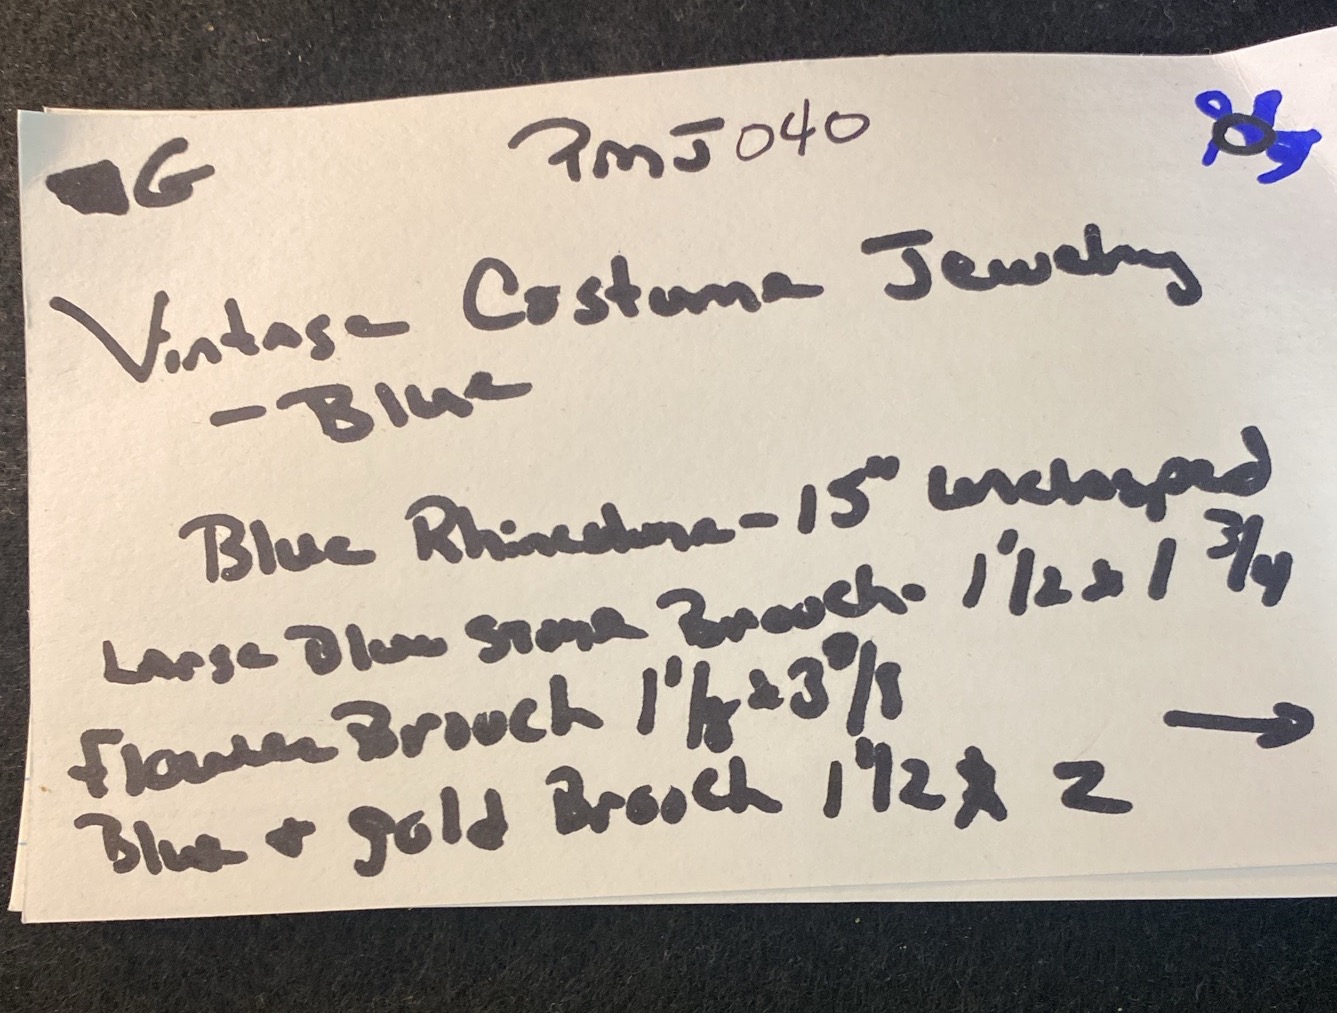 G PMJ040
Vintage Costume Jewelry
- Blue
Blue Rhinestone - 15" unclasped
Large Blue Stone Brooch - 1 1/2 x 1 3/4
Flower Brooch 1 1/8 x 3
Blue + gold Brooch 1 1/2 x 2